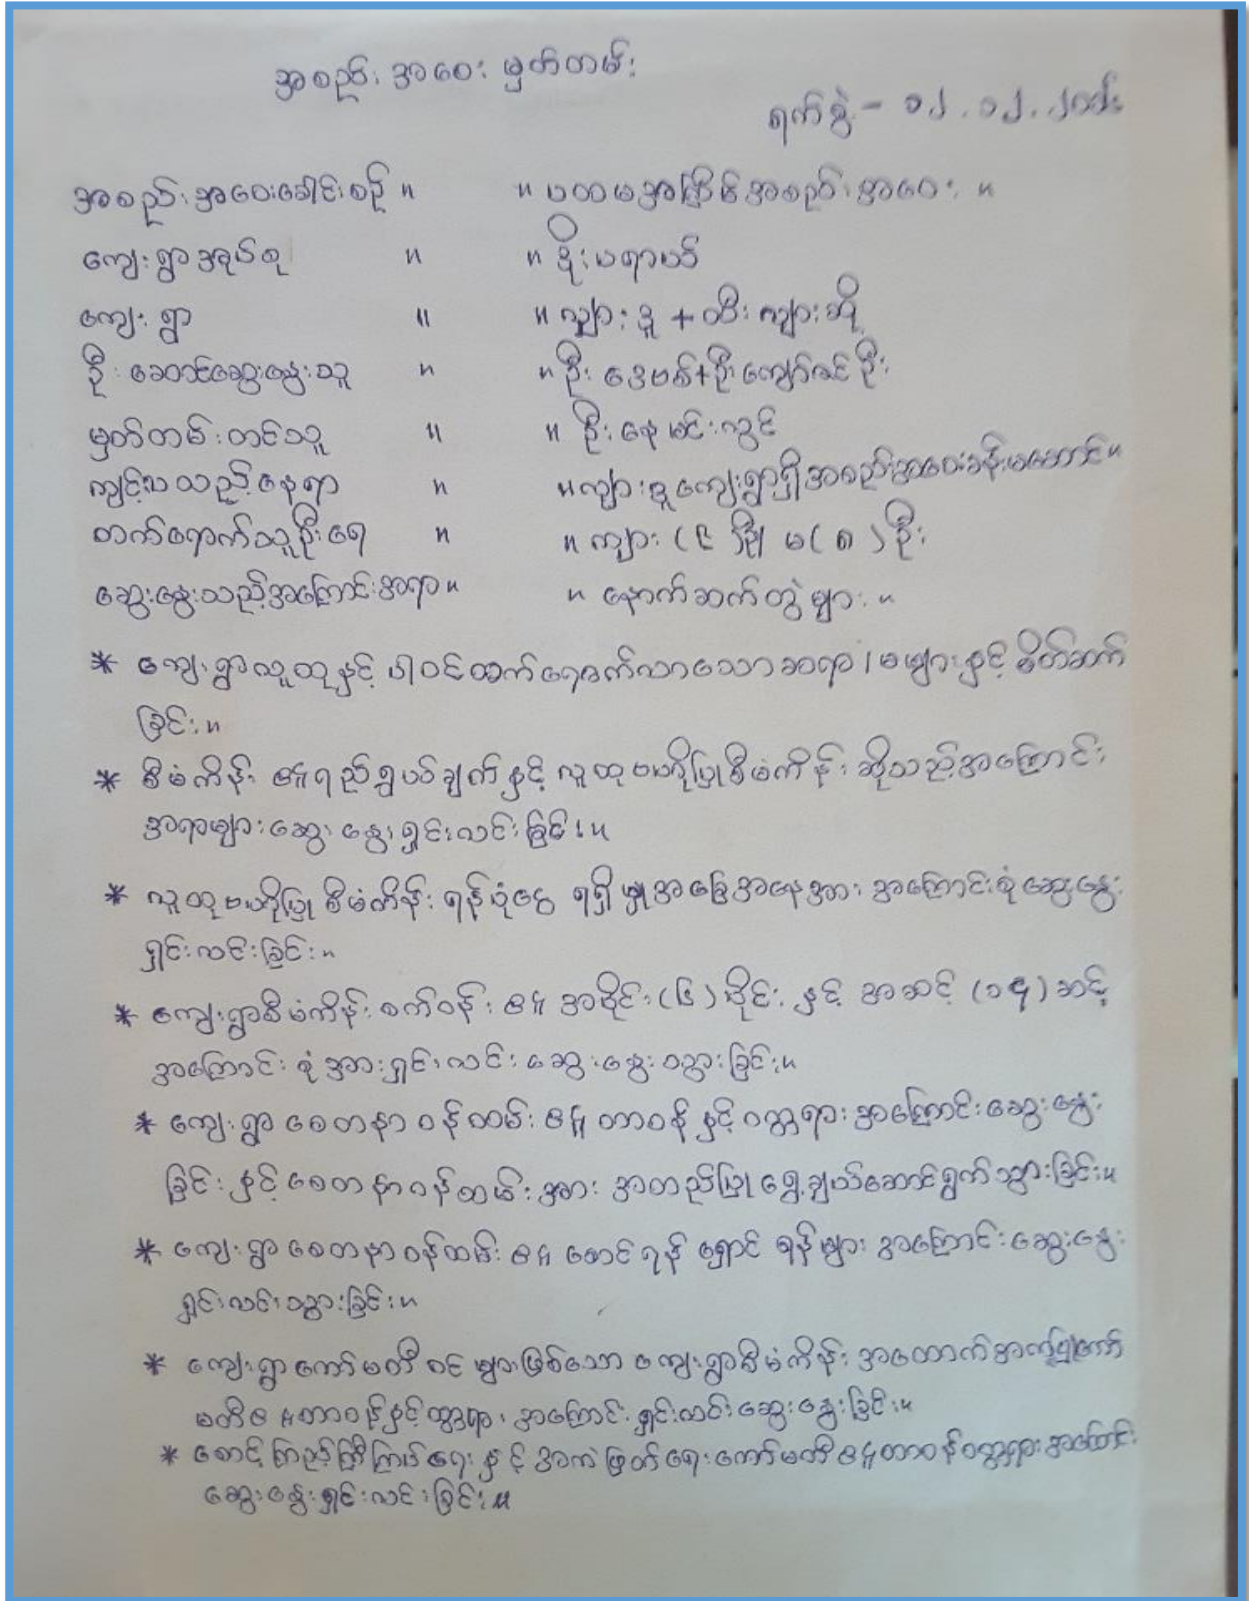 အစည်းအဝေး မှတ်တမ်း
ရက်စွဲ - ၁၂.၁၂.၂၀၁၆
အစည်းအဝေးခေါင်းစဉ် ။ ။ ပထမအကြိမ်အစည်းအဝေး ။
ကျေးရွာအုပ်စု ။ ။ ဒိုးပရာယစ်
ကျေးရွာ ။ ။ လျှားဒူ + ထီးကျားဆို
ဦးဆောင်ဆွေးနွေးသူ ။ ။ ဦးဒေဗစ်+ဦးကျော်ဇင်ဦး
မှတ်တမ်းတင်သူ ။ ။ ဦးနေမင်းလွင်
ကျင့်ပသည့်နေရာ ။ ။ လျှားဒူကျေးရွာရှိအစည်းအဝေးခန်းမဆောင်။
တက်ရောက်သူဦးရေ ။ ။ ကျား (၉)ဦး မ(၈)ဦး
ဆွေးနွေးသည့်အကြောင်းအရာ။ ။ နောက်ဆက်တွဲများ ။
* ကျေးရွာလူထုနှင့် ပါဝင်တက်ရောက်လာသောဆရာ/မများနှင့် မိတ်ဆက်
ခြင်း။
* စီမံကိန်း ၏ရည်ရွယ်ချက်နှင့် လူထုဗဟိုပြုစီမံကိန်း ဆိုသည့်အကြောင်း
အရာများဆွေးနွေးရှင်းလင်းခြင်း။
* လူထုဗဟိုပြု စီမံကိန်း ရန်ပုံငွေ ရရှိမှုအခြေအနေအား အကြောင်းစုံဆွေးနွေး
ရှင်းလင်းခြင်း။
* ကျေးရွာစီမံကိန်း စက်ဝန်း ၏ အပိုင်း (၆) ပိုင်း နှင့် အဆင့် (၁၅) ဆင့်
အကြောင်း စုံအားရှင်းလင်း ဆွေးနွေးသွားခြင်း။
* ကျေးရွာ စေတနာ ဝန်ထမ်း ၏ တာဝန် နှင့် ဝတ္တရား အကြောင်းဆွေးနွေး
ခြင်း နှင့် စေတနာဝန်ထမ်းအား အတည်ပြု ရွေးချယ်ဆောင်ရွက်သွားခြင်း။
* ကျေးရွာ စေတနာ ဝန်ထမ်း ၏ စောင်ရန် ရှောင် ရန်များ အကြောင်းဆွေးနွေး
ရှင်းလင်းသွားခြင်း။
* ကျေးရွာကော်မတီဝင် များဖြစ်သော ကျေးရွာစီမံကိန်း အထောက်အကူပြုကော်
မတီ၏ တာဝန်နှင့်ဝတ္တရား အကြောင်း ရှင်းလင်းဆွေးနွေးခြင်း။
* စောင့်ကြည့်ကြီးကြပ်ရေး နှင့် အကဲဖြတ်ရေးကော်မတီ၏တာဝန်ဝတ္တရားအကြောင်း
ဆွေးနွေးရှင်းလင်းခြင်း။